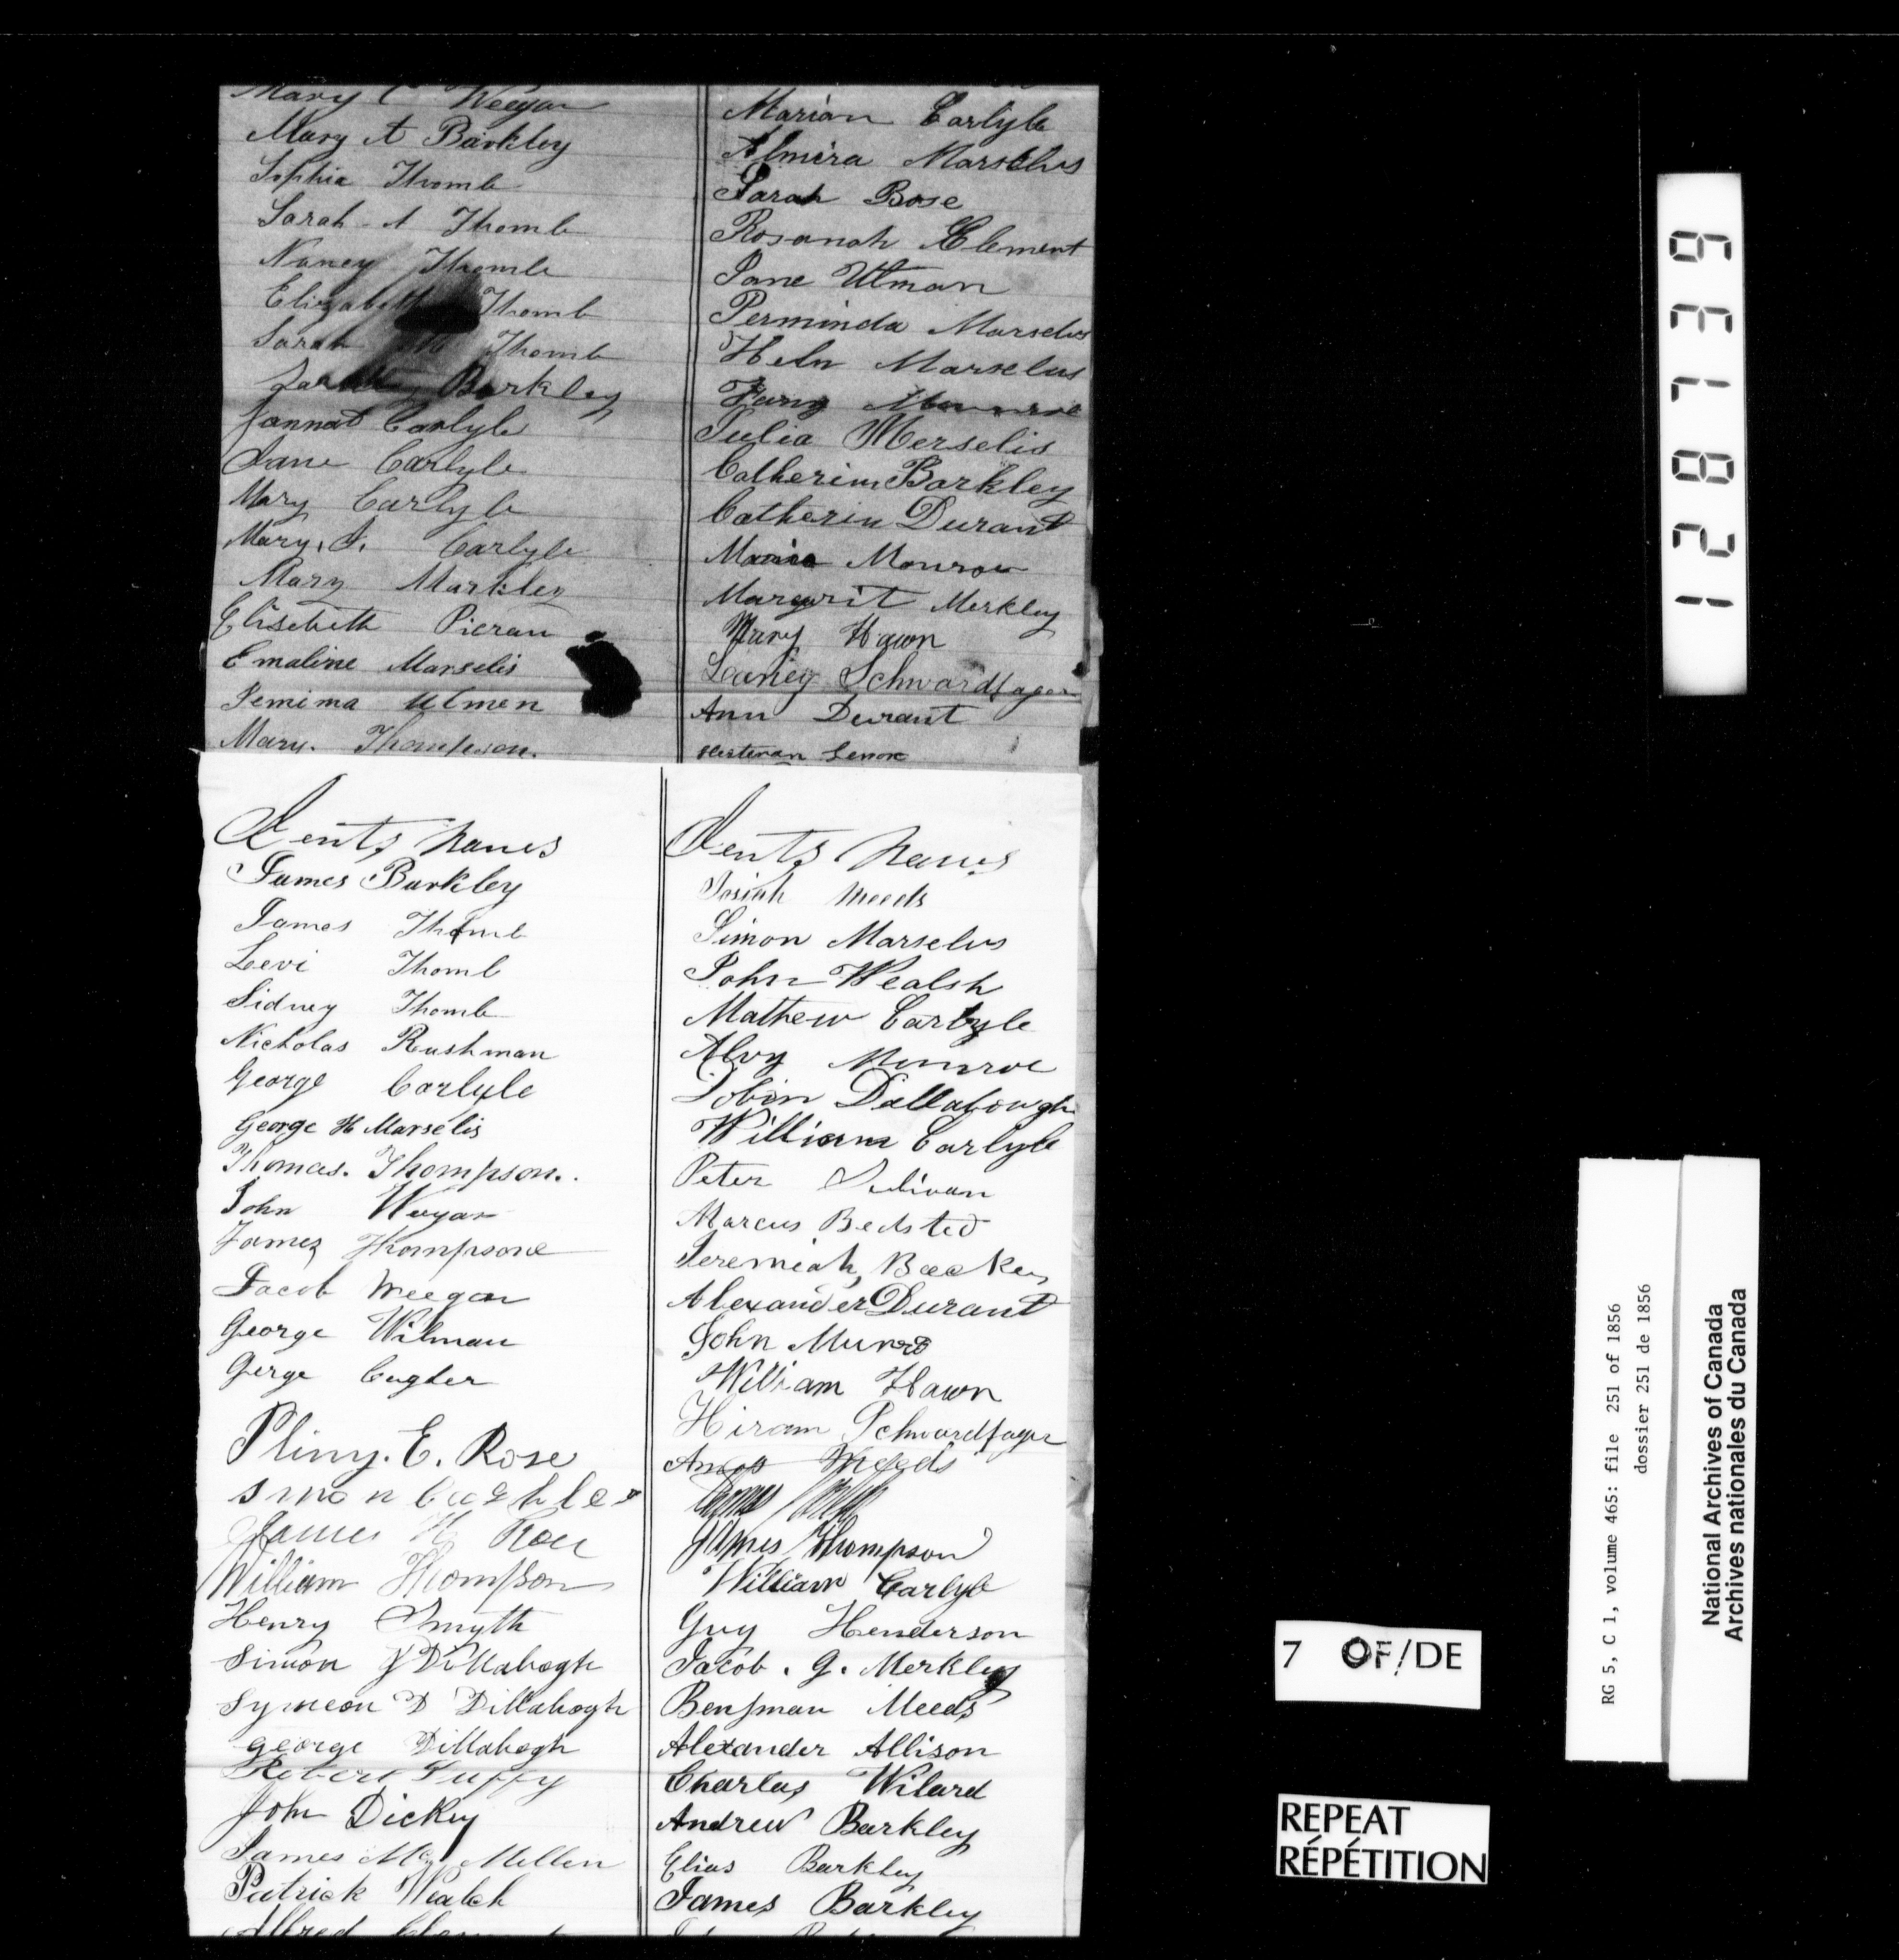 Mary C Weegan
Mary A Barkley
Sophia Thomb
Sarah A Thomb
Nancy Thomb
Elizabeth Thomb
Sarah M Thomb
Barkley
Jannat Carlyle
Jane Carlyle
Mary Carlyle
Mary. J. Carlyle
Mary Markley
Elisebeth Pieran
Emaline Marselis
Jemima Ulmen
Mary. Thompson.
Marian Carlyle
Almira Marselus
Sarah Bose
Rosanah Clement
Jane Ulman
Perminda Marselus
Heln Marselus
Fany Munroe
Julia Merselis
Catherin Barkley
Catherin Durant
Maria Monroe
Margrit Merkley
Mary Hawn
Leaney Schwardfager
Ann Durant
Lenox
Gents names
James Barkley
James Thomb
Leevi Thomb
Sidney Thomb
Nicholas Rushman
George Carlyle
George H Marselis
Thomas. Thompson.
John Weegar
James Thompsone
Jacob Weegar
George Wilman
Gerge Cugler
Pliny. E. Rose
James H Rose
William Thompson
Henry Smyth
Simon J Dillabogh
Symeon D Dillabogh
george Dillabogh
Robert Duffy
John Dickey
James Mc Millen
Patrick Wealch
Alfred
Gents names
Josiah Meeds
Simon Marselus
John Wealsh
Mathew Carlyle
Alvy Munroe
Tobin Dallabough
William Carlyle
Peter Sulivan
Marcus Bedsted
Jeremiah Backer
Alexander Durant
John Munro
William Hawn
Hiram Schwardfager
Amos Meeds
James Thompson
William Carlyle
Guy Henderson
Jacob. G. Merkley
Benjman Meeds
Alexander Allison
Charlas Wilard
Andrew Barkley
Elias Barkley
James Barkley
128739
RG 5, C 1, volume 465: file 251 of 1856
dossier 251 de 1856
National Archives of Canada
Archives nationales du Canada
7 OF/DE
REPEAT
RÉPÉTITION